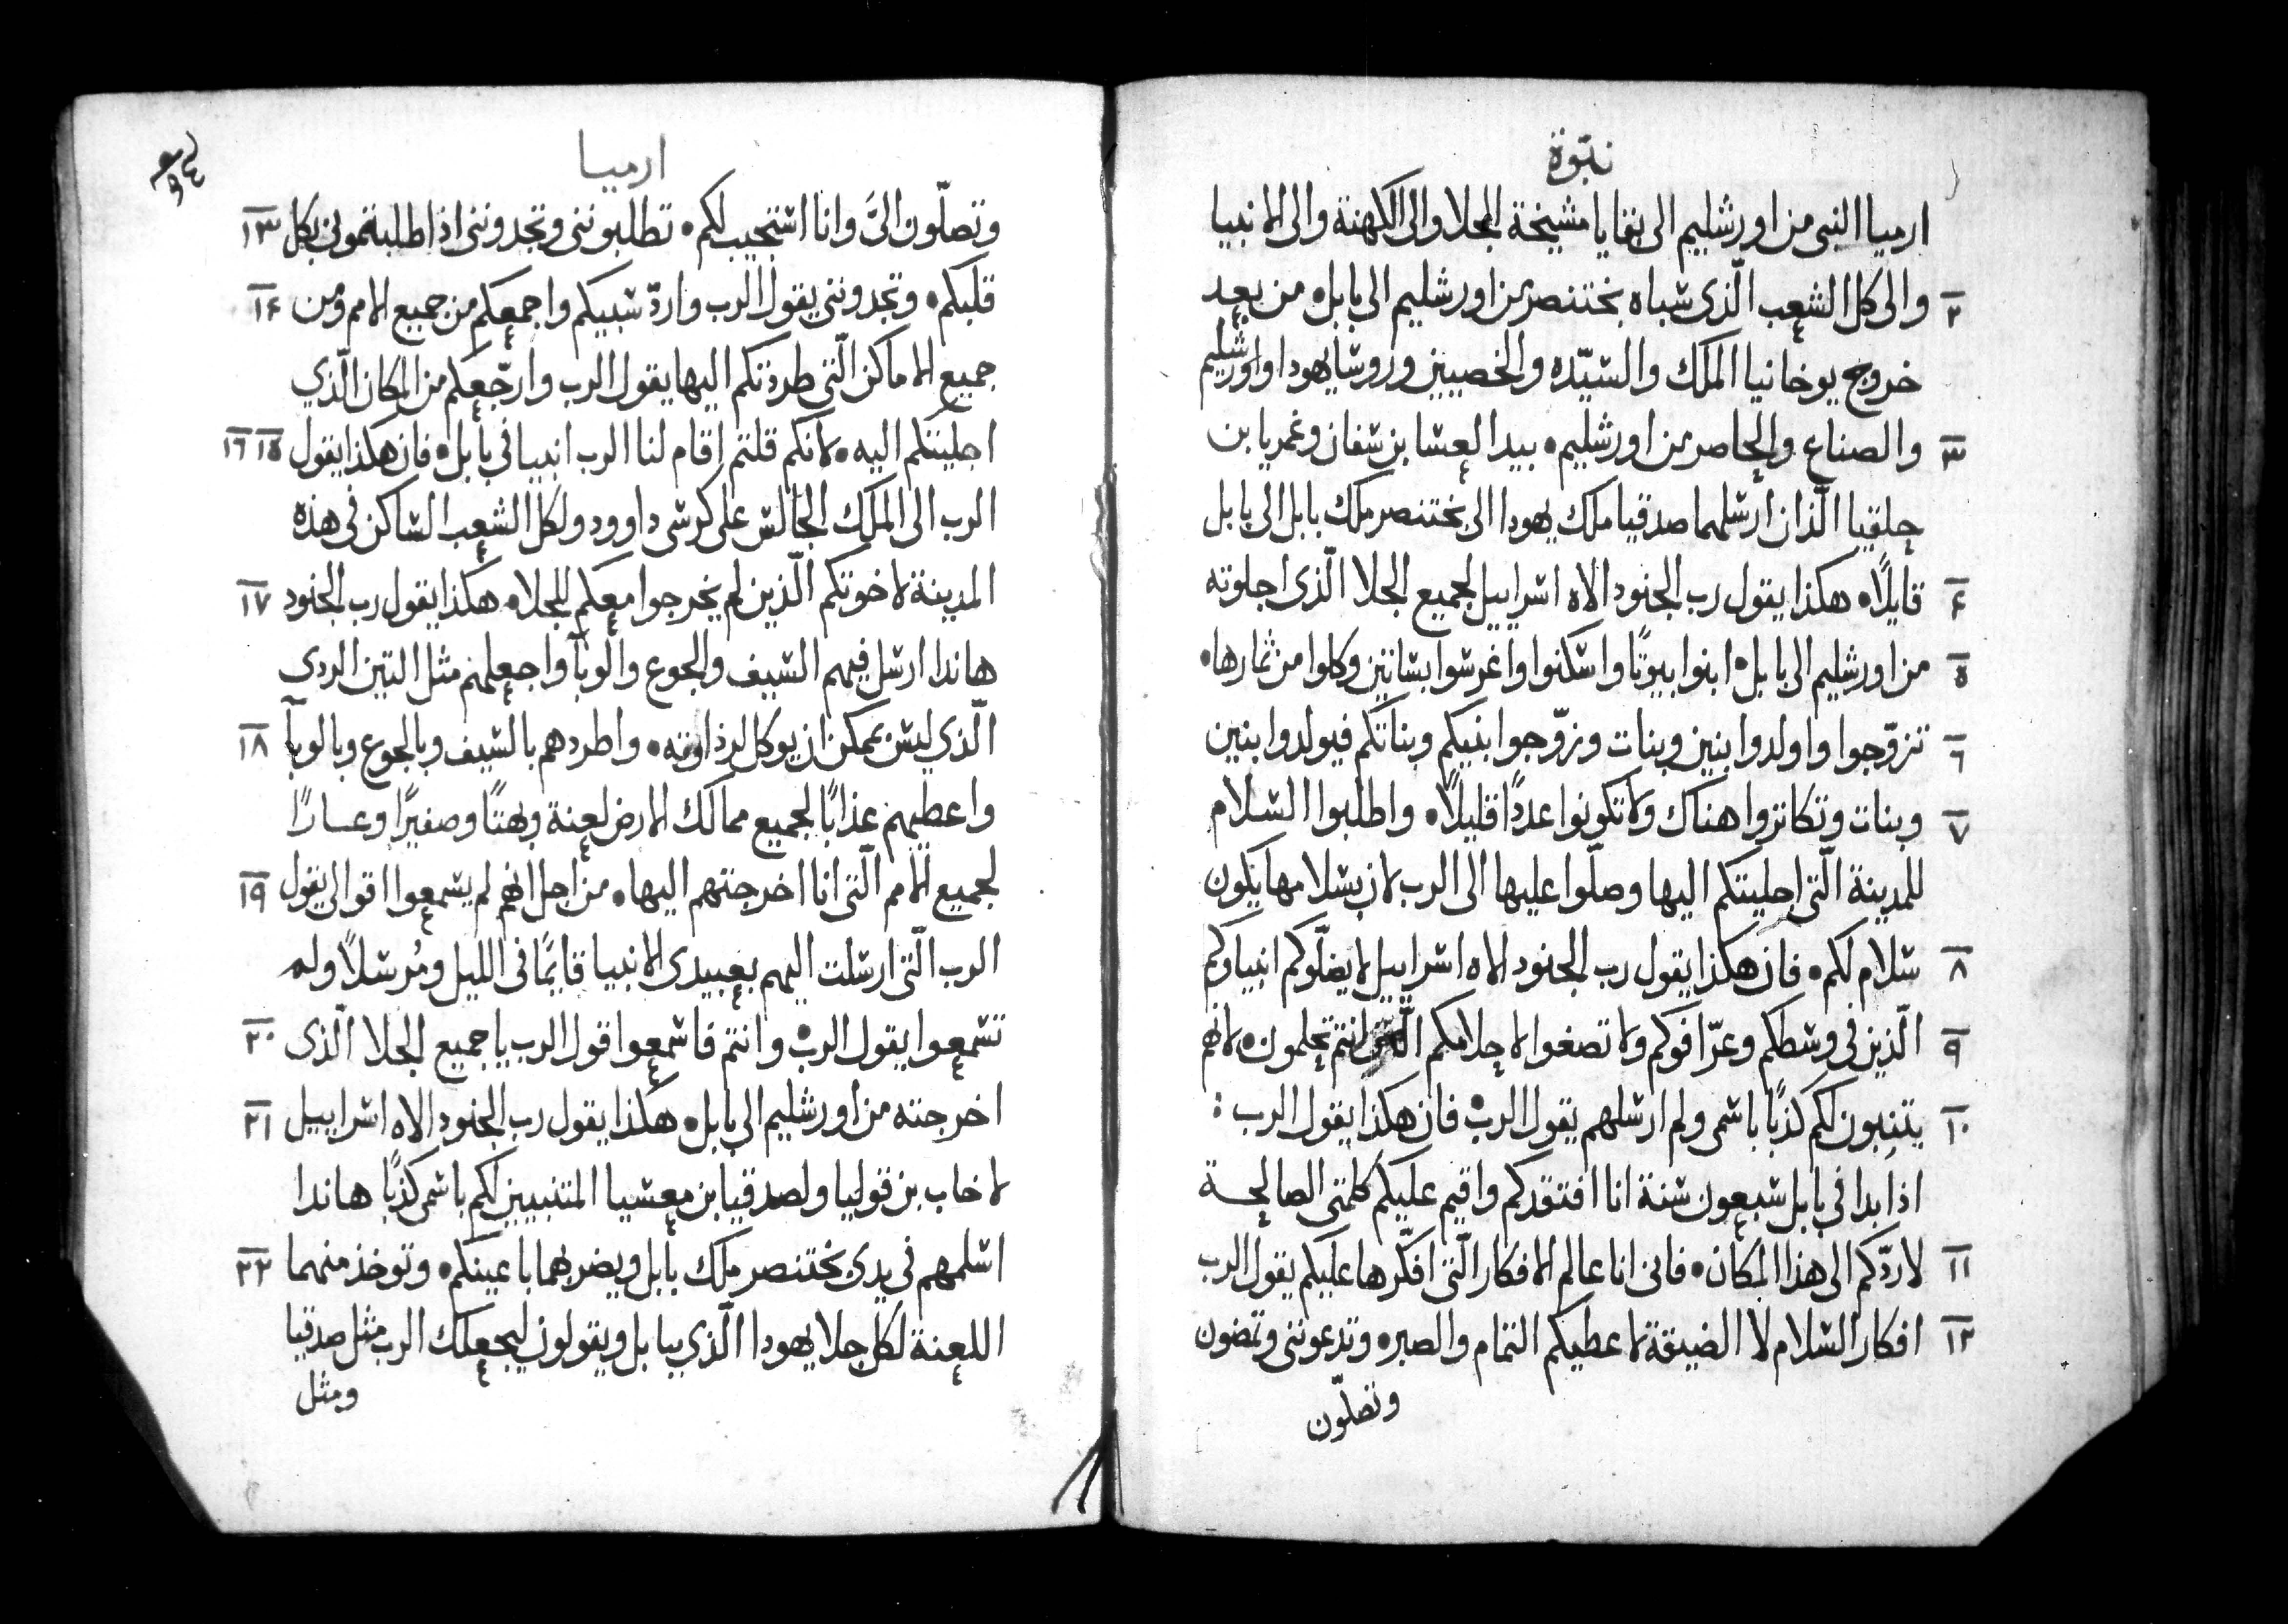 نبوّة
ارميا النبى من اورشليم الى بقايا مشيخة الجلا والى الكهنة والى الانبيا
٢ والى كل الشعب الّذى سباه بختنصر من اورشليم الى بابل • من بعد
خروج يوخانيا الملك والسّيّده والخصيين وروسا يهودا واورشليم
٣ والصناع والحاصر من اورشليم • بيد العشا بن شفان وغمريا بن
حلقيا الّذان ارسلهما صدقيا ملك يهودا الى بختنصر ملك بابل الى بابل
۴ قايلًا • هكذا يقول رب الجنود الاه اسراييل لجميع الجلا الّذى اجلوته
٥ من اورشليم الى بابل • ابنوا بيوتًا واسكنوا واغرسوا بساتين وكلوا من ثمارها •
٦ تزوّجوا واولدوا بنين وبنات وزوّجوا بنيكم وبناتكم فيولدوا بنين
٧ وبنات وتكاثروا هناك ولا تكونوا عددًا قليلًا • واطلبوا السلام
للمدينة الّتى اجليتكم اليها وصلّوا عليها الى الرب لان بسلامها يكون
٨ سلام لكم • فان هكذا يقول رب الجنود الاه اسراييل لا يضلّوكم انبياوكم
٩ الّذين فى وسطكم وعرّافوكم ولا تصغوا لاحلامكم انتم تحلمون • لانهم
١٠ يتنبون لكم كذبًا باسمى ولم ارسلهم يقول الرب • فان هكذا يقول الرب :
اذا بدا فى بابل سبعون سنة انا افتقدكم واقيم عليكم كلمتى الصالحة
١١ لاردّكم الى هذا المكان • فانى انا عالم الافكار الّتى افكّرها عليكم يقول الرب
١٢ افكار السلام لا الضيقة لاعطيكم التمام والصبر • وتدعوننى وتمضون
وتصلّون
ارميا
وتصلّون الىَّ وانا استجيب لكم • تطلبوننى وتجدوننى اذا طلبتمونى بكل ١٣
قلبكم • وتجدوننى يقول الرب واردّ سبيكم واجمعكم من جميع الامم ومن ١۴
جميع الاماكن الّتى طردتكم اليها يقول الرب وارجّعكم من المكان الّذي
اجليتكم اليه • لانكم قلتم اقام لنا الرب انبيا فى بابل • فان هكذا يقول ١٥ ١٦
الرب الى الملك الجالس على كرسى داوود ولكل الشعب الساكن فى هذه
المدينة لاخوتكم الّذين لم يخرجوا معكم للجلا • هكذا يقول رب الجنود ١٧
هاندا ارسل فيهم السيف والجوع والوبآ واجعلهم مثل التين الردى
الّذي ليس يمكن ان يوكل لرذاوته • واطردهم بالسيف وبالجوع وبالوبآ ١٨
واعطيهم عذابًا لجميع ممالك الارض لعنة وبهتًا وصفيرًا وعارًا
لجميع الامم الّتى انا اخرجتهم اليها • من اجل انهم لم يسمعوا اقوالى يقول ١٩
الرب الّتى ارسلت اليهم بعبيدى الانبيا قايمًا فى الليل ومُرسلًا ولم
تسمعوا يقول الرب • وانتم فاسمعوا قول الرب يا جميع الجلا الّذى ٢٠
اخرجته من اورشليم الى بابل • هكذا يقول رب الجنود الاه اسراييل ٢١
لاخاب بن قوليا ولصدقيا بن معسيا المتنبيين لكم باسمى كذبًا هاندا
اسلمهم فى يدى بختنصر ملك بابل ويضربهما باعينكم • وتوخذ منهما ٢٢
اللعنة لكل جلا يهودا الّذي ببابل ويقولون ليجعلك الرب مثل صدقيا
ومثل